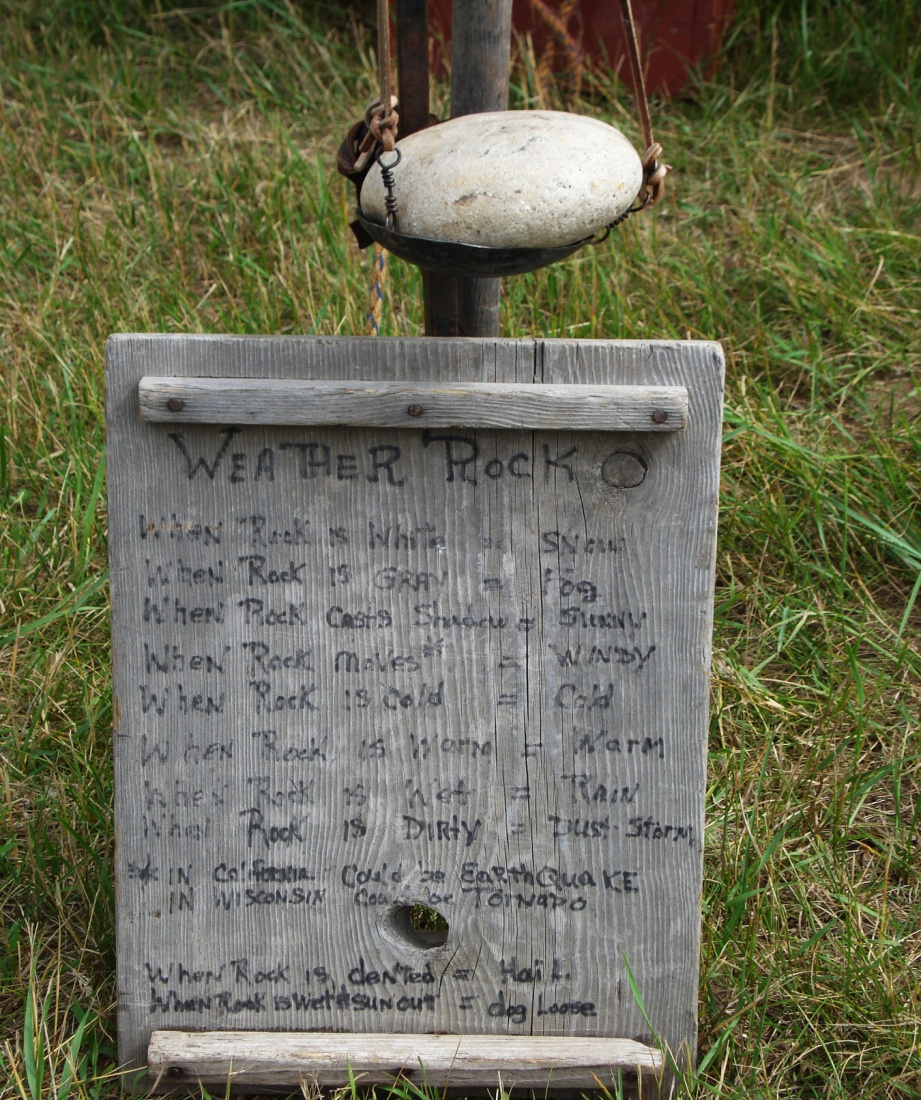 WEATHER ROCK
When Rock is White = SNow
When Rock is GRAY = Fog
When Rock Casts Shadow = SUNNY
When Rock Moves* = WINDY
When Rock is Cold = Cold
When Rock is Warm = Warm
When Rock is Wet = RAIN
When Rock is DIRTY = DUST-Storm
* IN California Could be EARTHQUAKE
IN WISCONSIN Could be TORNADO
When Rock is deNted = HaiL
When Rock is Wet & SUN OUT = dog Loose